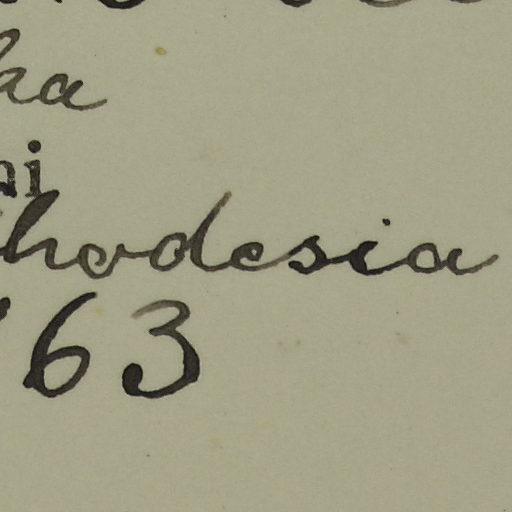 ka
ni
hodesia
63